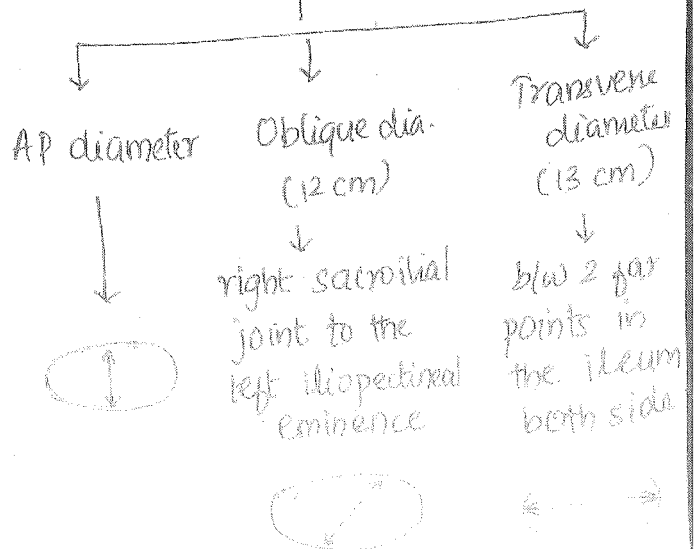 AP diameter
Oblique dia.
(12 cm)
right sacroilial
joint to the
left iliopectineal
eminence
Transverse
diameter
(13 cm)
b/w 2 far
points in
the ileum
both side